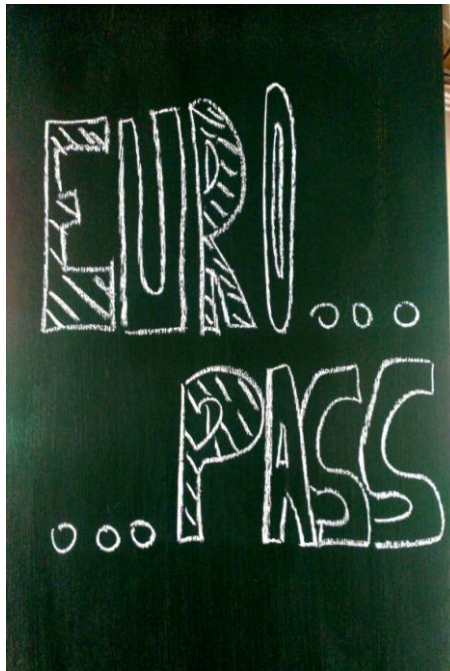 EURO...
...PASS